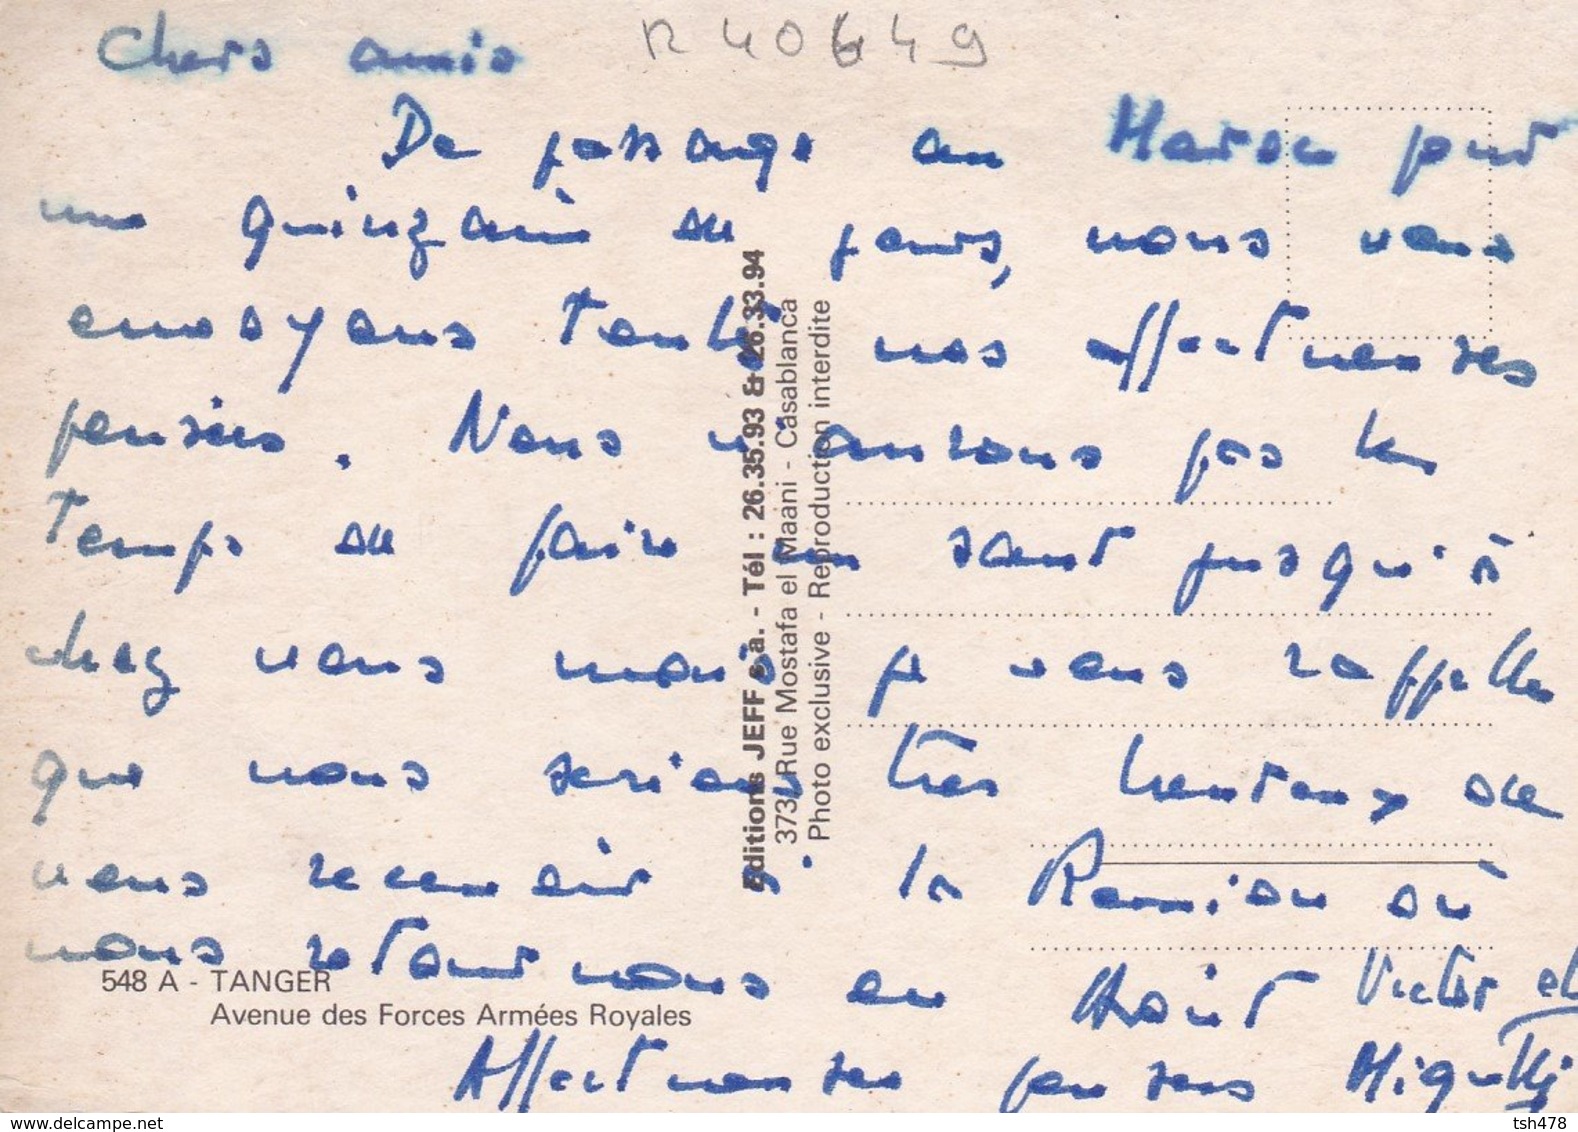 Chers amis
R 40649
De passage au Maroc pour
une quinzaine de jours, nous vous
envoyons toutes nos affectueuses
pensées. Nous n'aurons pas le
temps de faire un saut jusqu'à
chez vous mais je vous rappelle
que nous serions très heureux de
vous recevoir à la Réunion où
nous retournons en Août Victor et
Affectueuses pensées
Editions JEFF s.a. - Tél : 26.35.93 & 26.33.94
373, Rue Mostafa el Maani - Casablanca
Photo exclusive - Reproduction interdite
548 A - TANGER
Avenue des Forces Armées Royales
www.delcampe.net
tsh478